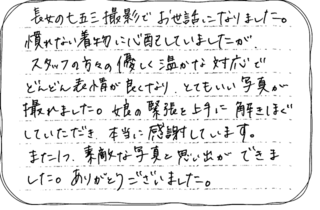 長女の七五三撮影でお世話になりました。
慣れない着物に心配していましたが、
スタッフの方々の優しく温かな対応で
どんどん表情が良くなり、とてもいい写真が
撮れました。娘の緊張を上手に解きほぐ
していただき、本当に感謝しています。
また1つ、素敵な写真と思い出ができま
した。ありがとうございました。